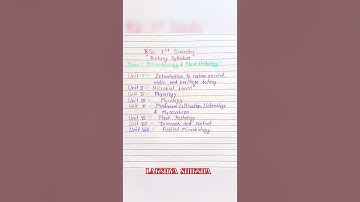 BSC Ist Semester
"Botany Syllabus"
Paper I Microbiology & Plant Pathology
Unit-I - Introduction to indian ancient,
vedic and heritage botany
Unit II - Microbial World
Unit III - Phycology
Unit IV - Mycology
Unit V - Mushroom Cultivation, Lichenology
& Mycorrhiza
Unit VI - Plant Pathology
Unit VII - Diseases and Control
Unit VIII - Applied Microbiology
LAKSHYA SHIKSHA